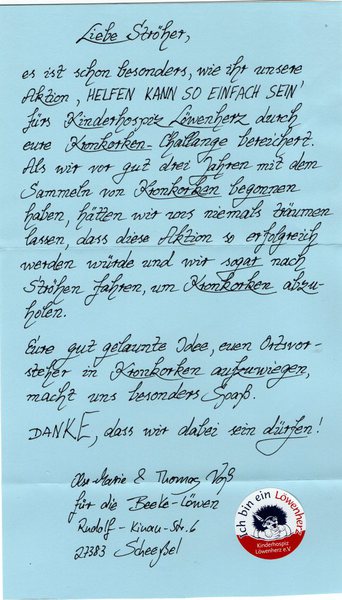 Liebe Ströher,
es ist schon besonders, wie ihr unsere
Aktion 'HELFEN KANN SO EINFACH SEIN'
fürs Kinderhospiz Löwenherz durch
eure Kronkorken-Challange bereichert.
Als wir vor gut drei Jahren mit dem
Sammeln von Kronkorken begonnen
haben, hätten wir uns niemals träumen
lassen, dass diese Aktion so erfolgreich
werden würde und wir sogar nach
Ströhen fahren, um Kronkorken abzu-
holen.
Eure gut gelaunte Idee, euen Ortsvor-
steher in Kronkorken aufzuwiegen,
macht uns besonders Spaß.
DANKE, dass wir dabei sein dürfen!
Marie & Thomas Voß
für die Beeke-Löwen
Rudolf-Kinau-Str. 6
27383 Scheeßel
Ich bin ein Löwenherz
Kinderhospiz
Löwenherz e.V.